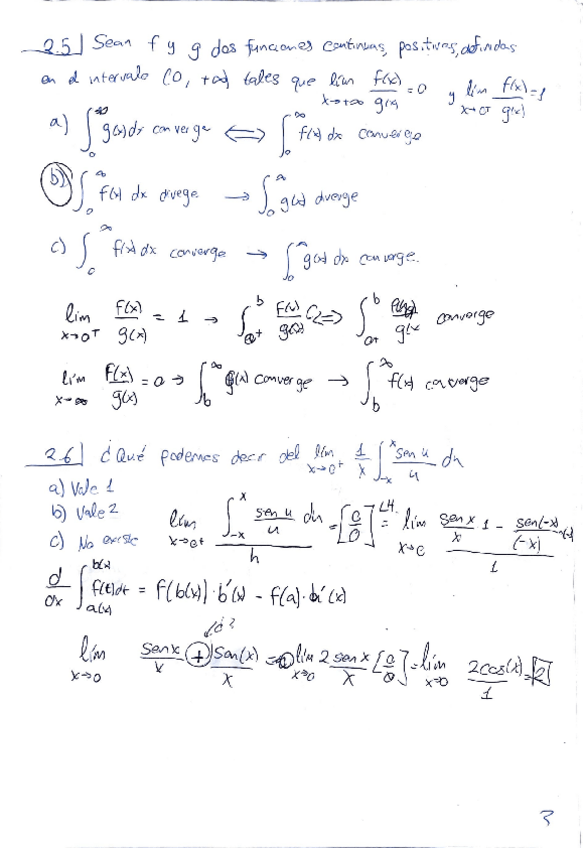 2.5| Sean f y g dos funciones continuas, positivas, definidas
en el intervalo (0, +∞) tales que lim x→+∞ f(x)/g(x) = 0 y lim x→0+ f(x)/g(x) = 1
a) ∫₀^∞ g(x) dx converge ⟺ ∫₀^∞ f(x) dx converge
b) ∫₀^∞ f(x) dx divege → ∫₀^∞ g(x) dverge
c) ∫₀^∞ f(x) dx converge → ∫₀^∞ g(x) dx converge.
lim x→0+ f(x)/g(x) = 1 → ∫₀+^b f(x)/g(x) ⟺ ∫₀+^b g(x) converge
lim x→∞ f(x)/g(x) = 0 → ∫_b^∞ g(x) converge → ∫_b^∞ f(x) converge
2.6| ¿Qué podemos decir del lim x→0+ 1/x ∫_-x^x sen u/u du
a) Vale 1
b) Vale 2
c) No existe
lim x→0+ ∫_-x^x sen u/u du / h = [0/0] L'H = lim x→0 (sen x/x · 1 − sen(-x)/(-x) (-1)) / 1
d/dx ∫_a(x)^b(x) f(t)dt = f(b(x)) · b'(x) − f(a) · a'(x)
¿é?
lim x→0 sen x/x + sen(x)/x = lim x→0 2 sen x/x [0/0] = lim x→0 2cos(x)/1 = 2
3